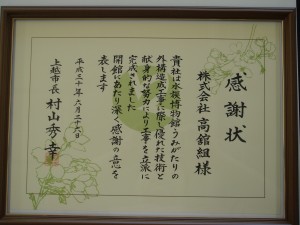 感謝状
株式会社 高舘組 様
貴社は水族博物館うみがたりの
外構造成工事に際し優れた技術と
献身的な努力により工事を立派に
完成されました
開館にあたり深く感謝の意を
表します
平成三十年六月二十六日
上越市長 村山秀幸